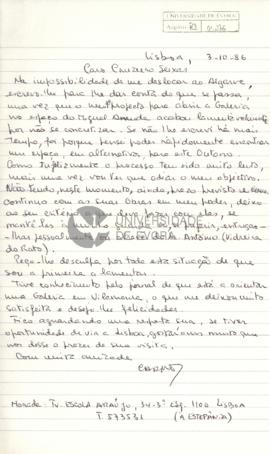 UNIVERSIDADE DE ÉVORA
Lisboa, 3-10-86
Caro Cruzeiro Seixas
Na impossibilidade de me deslocar ao Algarve,
escrevo-lhe para lhe dar conta do que se passa,
uma vez que o meu projecto para abrir a Galeria
no espaço do Miguel acabou
por não se concretizar. Se não lhe escrevi há mais
tempo, foi porque penso poder rapidamente encontrar
um espaço, em alternativa, para este Outono.
Como infelizmente o processo tem sido muito lento,
mais uma vez vou ter que adiar o meu objectivo.
Não tendo, neste momento, ainda, prazo previsto
continuo com as suas obras em meu poder, deixo
ao seu critério se
UNIVERSIDADE
DE ÉVORA
lhas pessoalmente António (Vidreira
do Rato).
Peço-lhe desculpa por toda esta situação de que
sou a primeira a lamentar.
Tive conhecimento pelo jornal de que está a orientar
uma Galeria em Vilamoura, o que me deixou muito
satisfeita e desejo-lhe felicidades.
Fico aguardando uma resposta sua, se tiver
oportunidade de vir a Lisboa, gostaríamos muito que
nos desse o prazer da sua visita.
Com muita amizade
Morada: Tv. ESCOLA ARAÚJO, 34-3º Esq. 1100 LISBOA
T. 573531 (À ESTEFÂNIA)